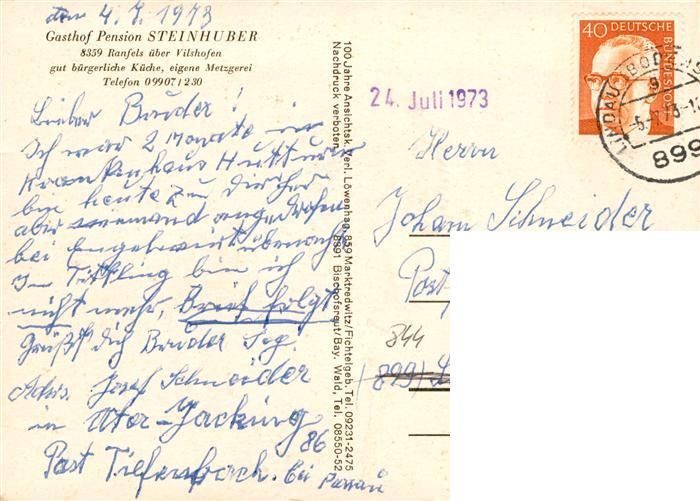 den 4.7.1973
Gasthof Pension STEINHUBER
8359 Ranfels über Vilshofen
gut bürgerliche Küche, eigene Metzgerei
Telefon 09907/230
Lieber Bruder!
Ich war 2 Monate in
Krankenhaus Hutturm
bin heute zu Dir her
aber niemand angetroffen
bei
In Tittling bin ich
nicht mehr, Brief folgt
Grüßt dich Bruder
Adrs. Josef Schneider
in Uter-Jacking
86
Post Tiefenbach. bei Passau
100 Jahre Ansichtsk. Verl. Löwenhag, 859 Marktredwitz/Fichtelgeb. Tel. 09231-2475
Nachdruck verboten. 8391 Bischofsreut/Bay. Wald, Tel. 08550-52
24. Juli 1973
40 DEUTSCHE
BUNDESPOST
LINDAU (BODENS
g
-5.-7.73-1
899
Herrn
Johann Schneider
Post
844
(899)